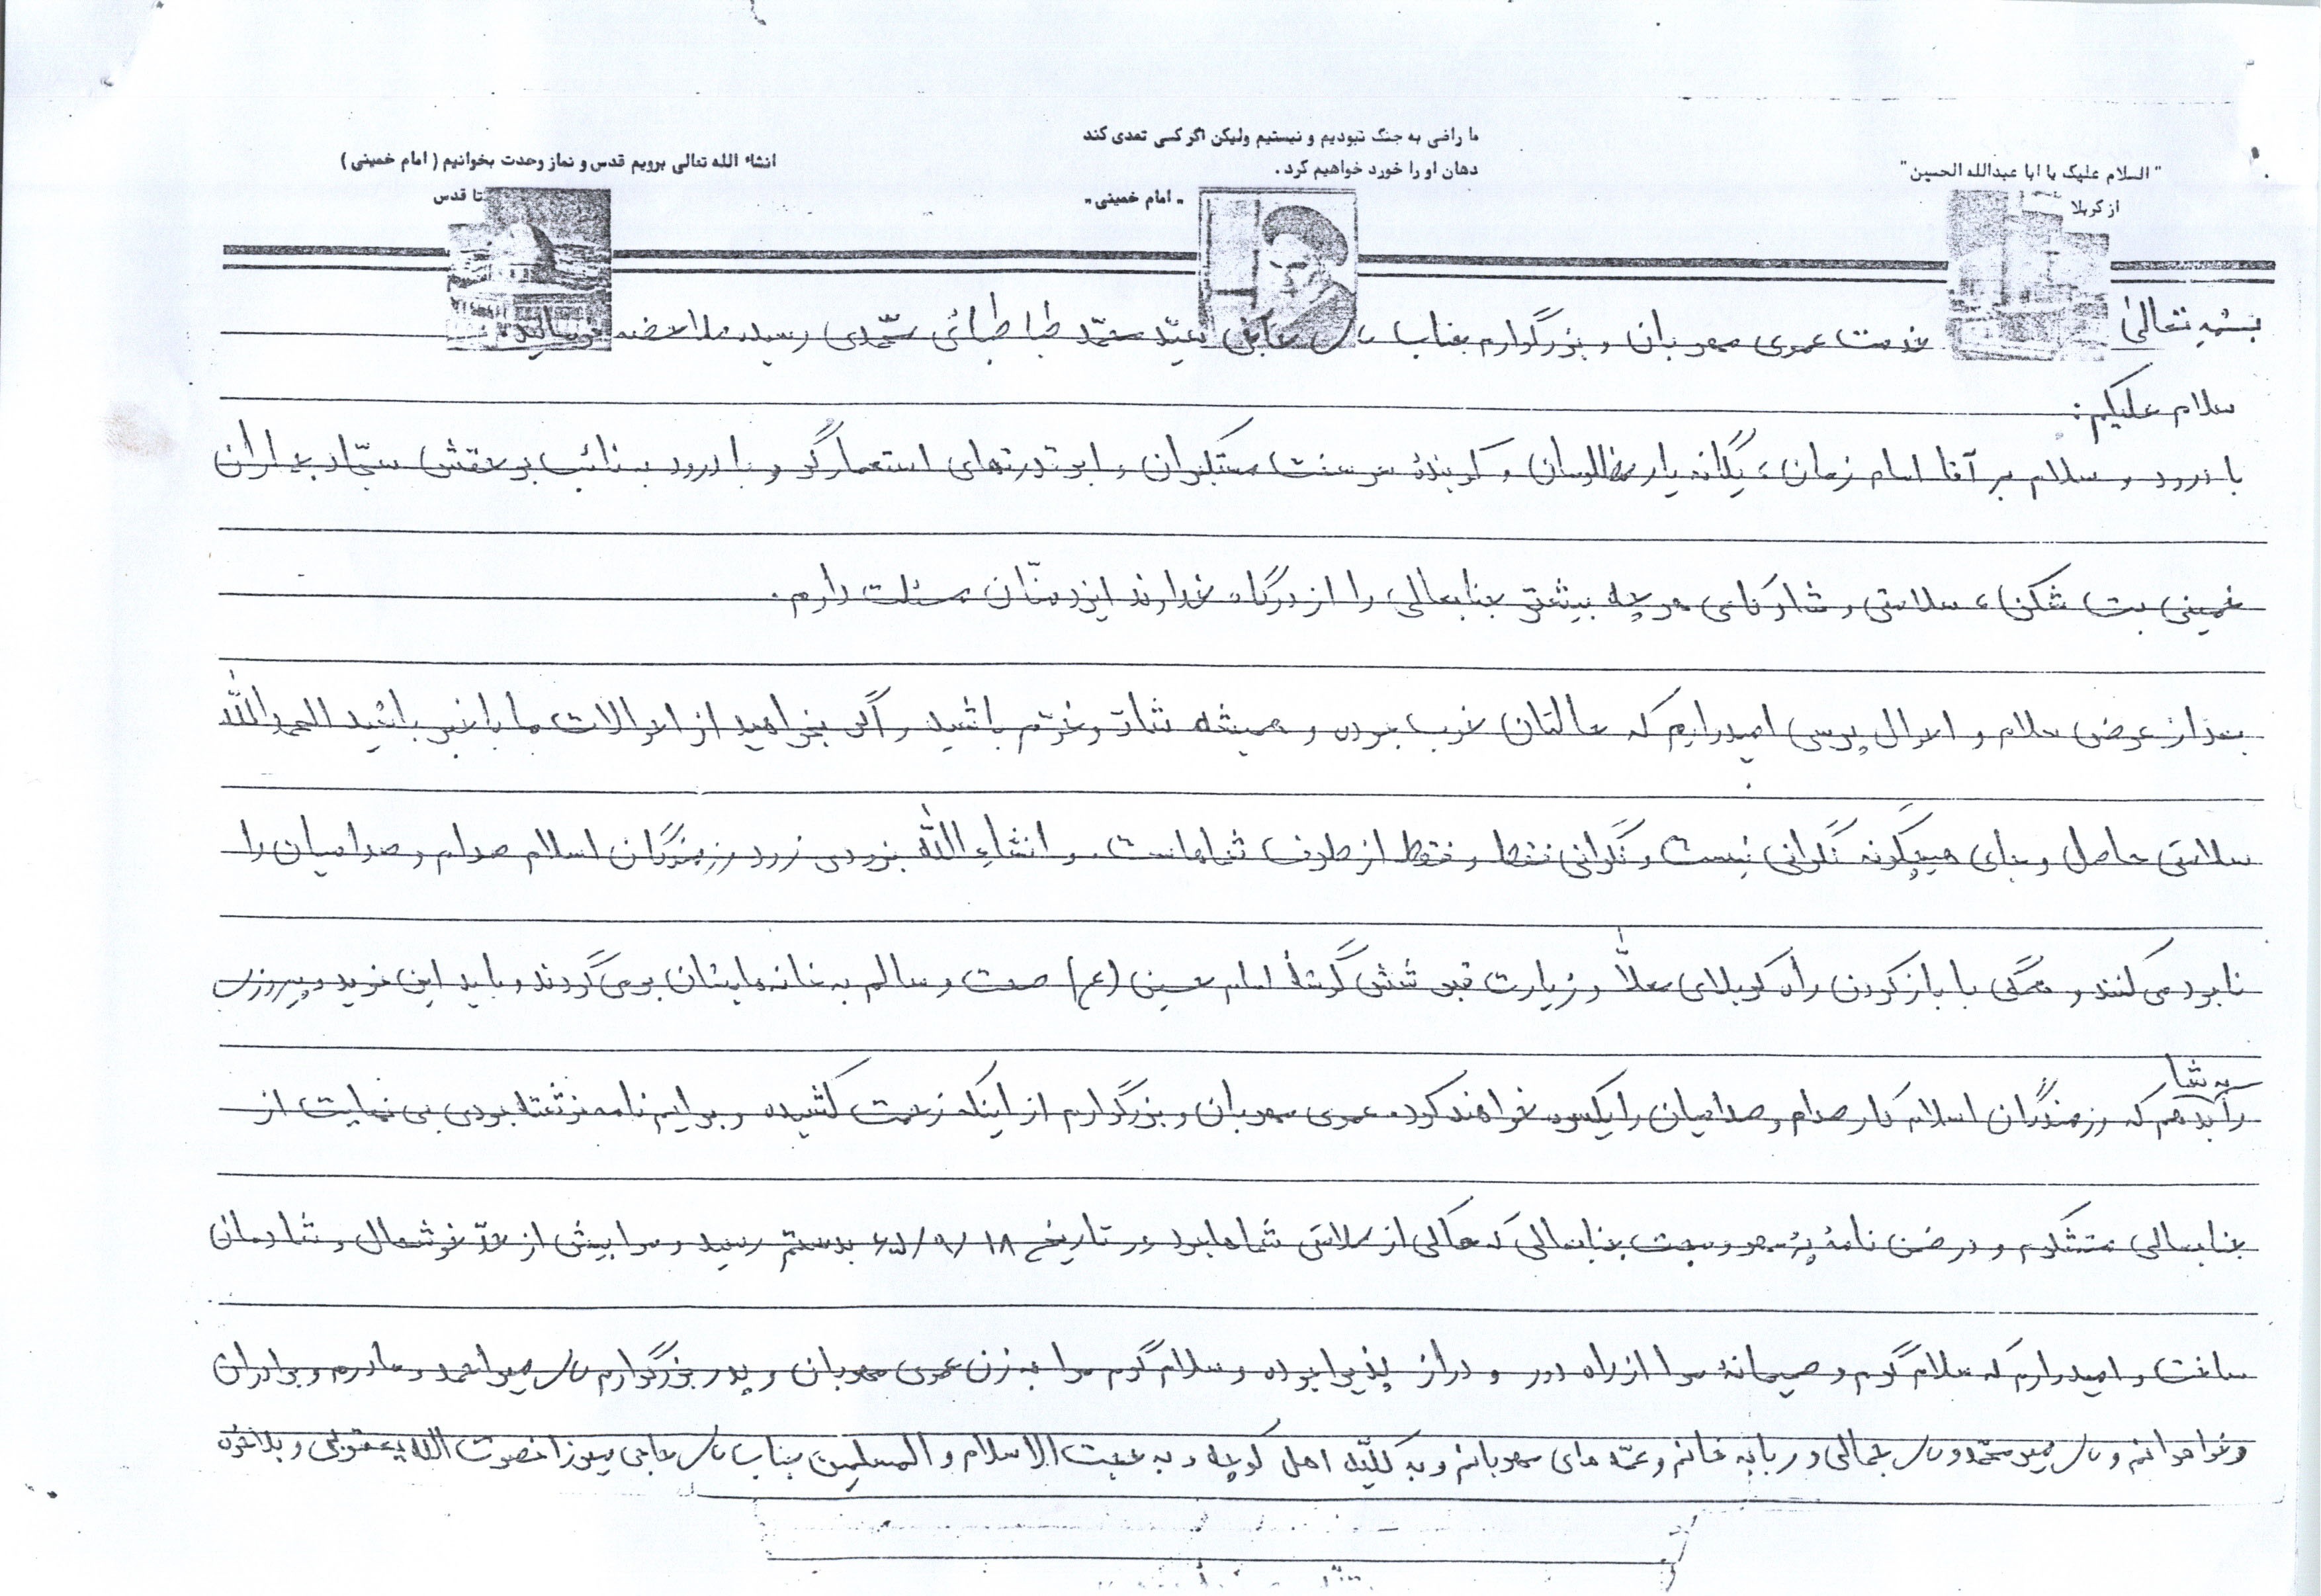 ما راضی به جنگ نبودیم و نیستیم ولیکن اگر کسی تعدی کند
دهان او را خورد خواهیم کرد .
" امام خمینی "
" السلام علیک یا ابا عبدالله الحسین "
از کربلا
انشاء الله تعالی برویم قدس و نماز وحدت بخوانیم ( امام خمینی )
تا قدس
بسمه تعالیٰ خدمت عموی مهربان و بزرگوارم جناب سید محمّد طباطبائی رسیده ملاحضه فرمائید.
سلام علیکم :
با درود و سلام بر آقا امام زمان، یگانه یار مظلومان و کوبندهٔ سرسخت مستکبران و ابرقدرتهای استعمارگر و با درود به نائب برحقش جماران
خمینی بت شکن، سلامتی و شادکامی هر چه بیشتر جنابعالی را از درگاه خداوند ایزد منّان مسئلت دارم.
بعد از عرض سلام و احوال پرسی امیدوارم که حالتان خوب بوده و همیشه شاد و خرّم باشید و اگر بخواهید از احوالات ما باخبر باشید الحمدالله
سلامتی حاصل و جای هیچگونه نگرانی نیست و نگرانی فقط و فقط از طرف شماهاست. و انشاءالله بزودی زود رزمندگان اسلام صدام و صدامیان را
نابود می کنند و همگی با باز کردن راه کربلای معلّا و زیارت قبر شش گوشهٔ امام حسین (ع) صحت و سالم به خانه هایشان برمی گردند و باید این نوید و پیروزی
به شما
را بدهم که رزمندگان اسلام کار صدام و صدامیان را یکسره خواهند کرد. عموی مهربان و بزرگوارم از اینکه زحمت کشیده و برایم نامه نوشته بودی بی نهایت از
جنابعالی متشکرم و در ضمن نامهٔ پر مهر و محبت جنابعالی که حاکی از سلامتی شماها بود در تاریخ ۶۵/۹/۱۸ بدستم رسید و مرا بیش از حدّ خوشحال و شادمان
ساخت و امیدوارم که سلام گرم و صمیمانهٔ مرا از راه دور و دراز پذیرا بوده و سلام گرم مرا به زن عموی مهربان و پدر بزرگوارم میر احمد و مادرم و برادران
و خواهرانم و میر محمّد و جمالی و ربابه خانم و عمّه های مهربانم و به کلیّه اهل کوچه و به حجت الاسلام و المسلمین جناب حاجی میرزا نصرت الله یعقوبی و بلاخره